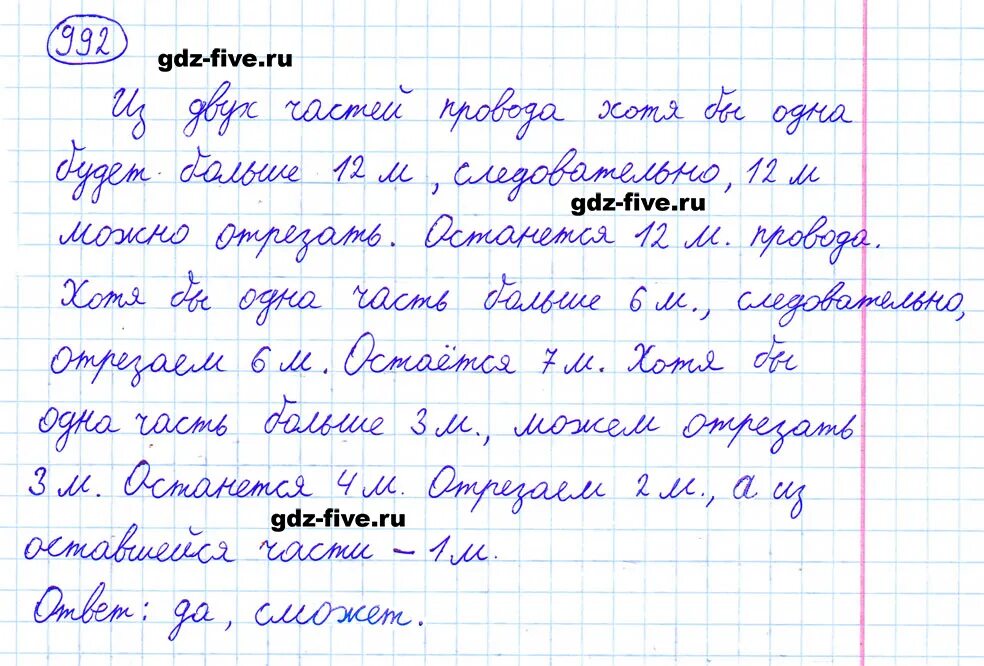 992
gdz-five.ru
Из двух частей провода хотя бы одна
будет больше 12 м, следовательно, 12 м
gdz-five.ru
можно отрезать. Останется 12 м. провода.
Хотя бы одна часть больше 6 м., следовательно,
отрезаем 6 м. Остаётся 7 м. Хотя бы
одна часть больше 3 м., можем отрезать
3 м. Останется 4 м. Отрезаем 2 м., а из
gdz-five.ru
оставшейся части – 1 м.
Ответ: да, сможет.